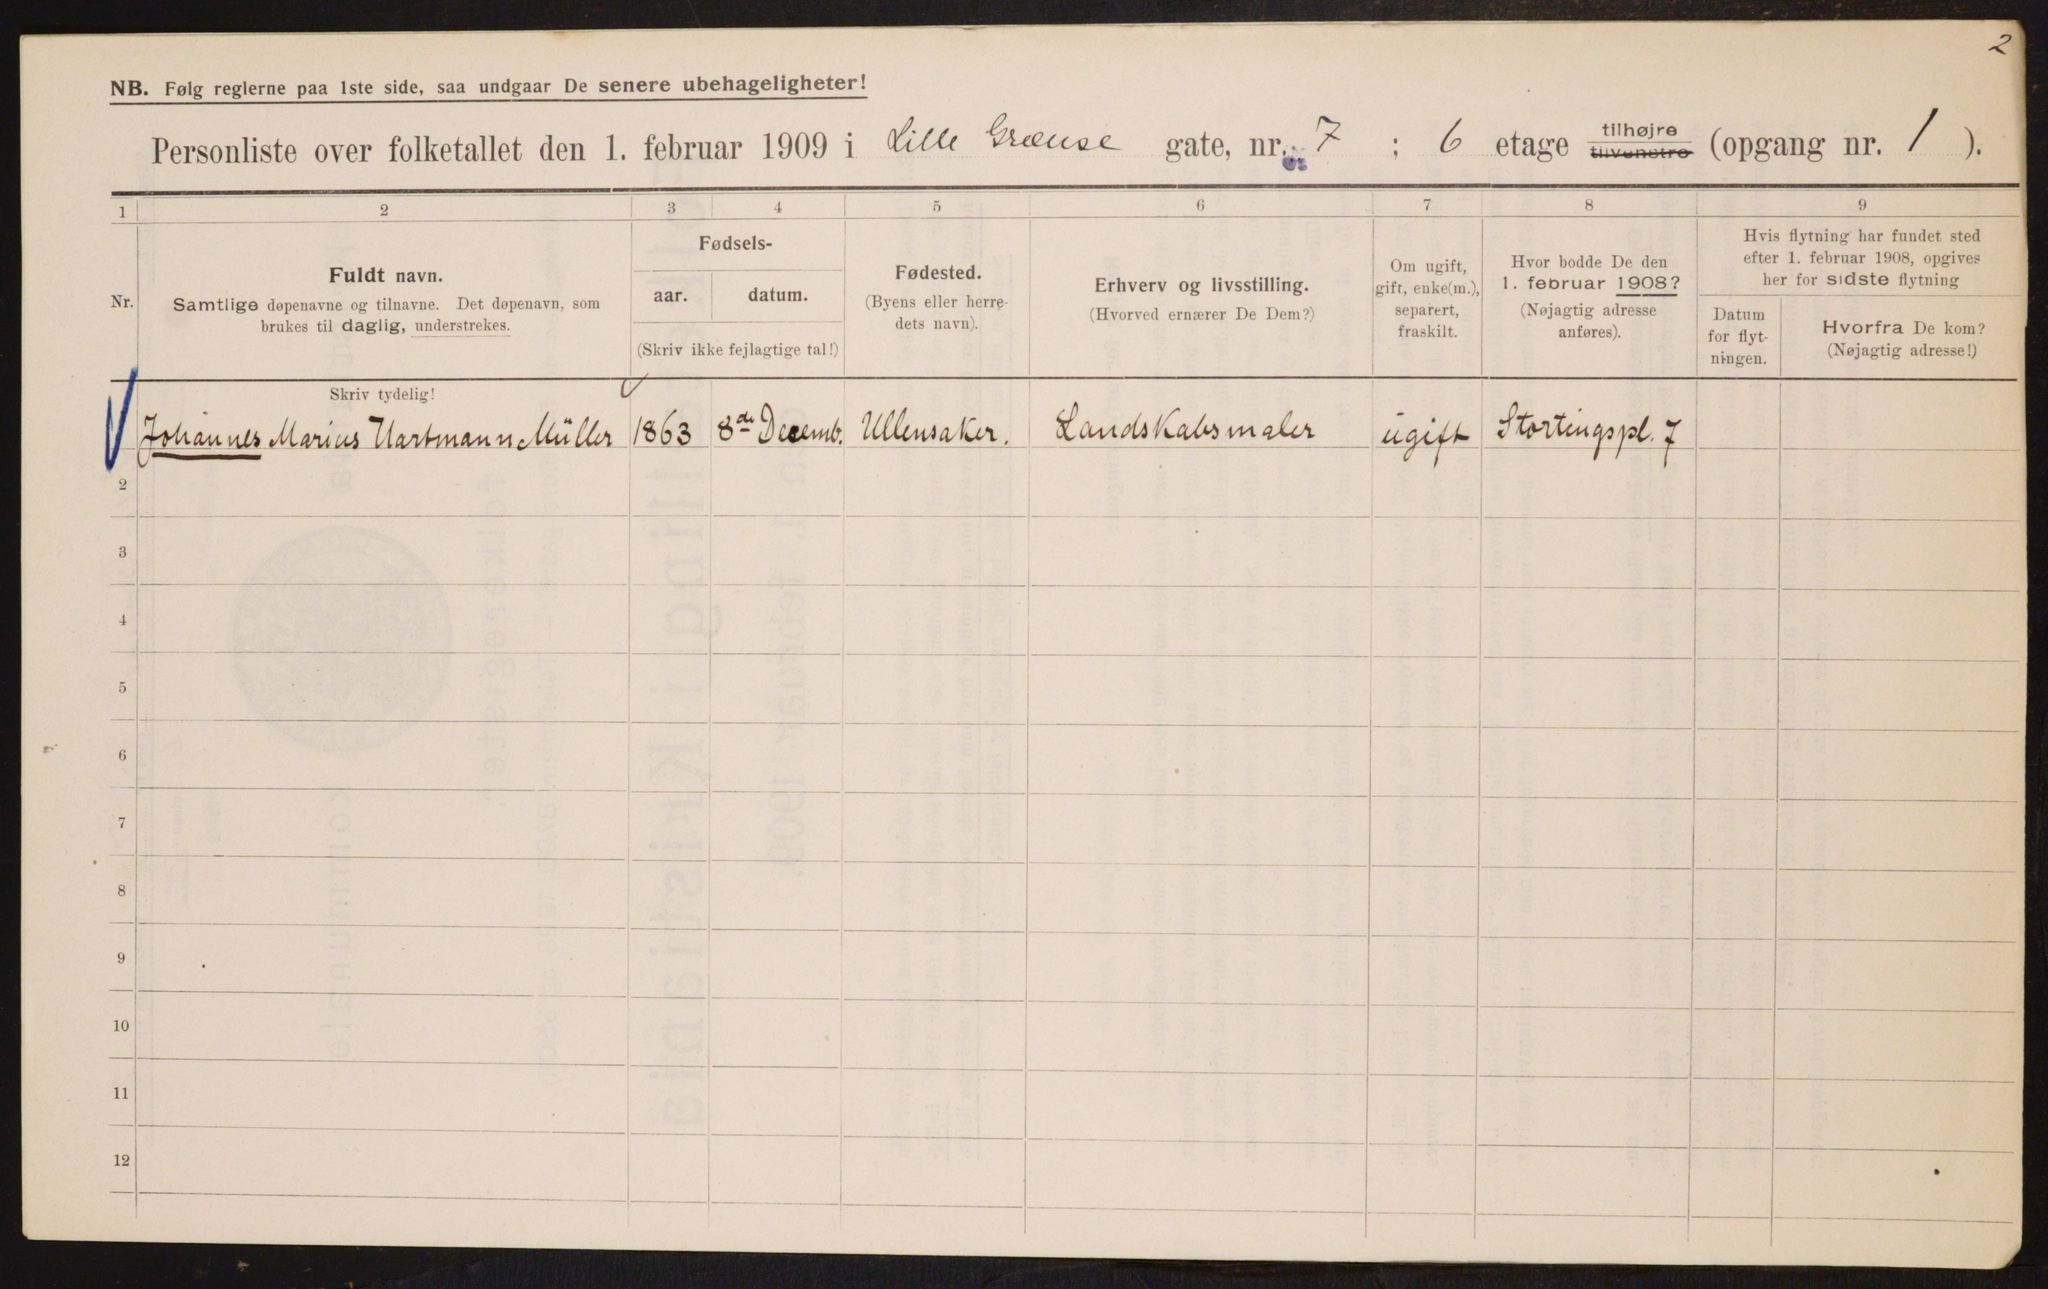 2
NB. Følg reglerne paa 1ste side, saa undgaar De senere ubehageligheter!
Personliste over folketallet den 1. februar 1909 i Lille Grænse gate, nr. 7 ; 6 etage tilhøjre tilvenstre (opgang nr. 1 ).
1 2 3 4 5 6 7 8 9
Nr.
Fuldt navn.
Samtlige døpenavne og tilnavne. Det døpenavn, som
brukes til daglig, understrekes.
Fødsels-
aar. datum.
(Skriv ikke fejlagtige tal!)
Fødested.
(Byens eller herre-
dets navn).
Erhverv og livsstilling.
(Hvorved ernærer De Dem?)
Om ugift,
gift, enke(m.),
separert,
fraskilt.
Hvor bodde De den
1. februar 1908?
(Nøjagtig adresse
anføres).
Hvis flytning har fundet sted
efter 1. februar 1908, opgives
her for sidste flytning
Datum
for flyt-
ningen.
Hvorfra De kom?
(Nøjagtig adresse!)
Skriv tydelig!
Johannes Marius Hartmann Müller 1863 8de Decemb. Ullensaker. Landskabsmaler ugift Stortingspl. 7
2
3
4
5
6
7
8
9
10
11
12